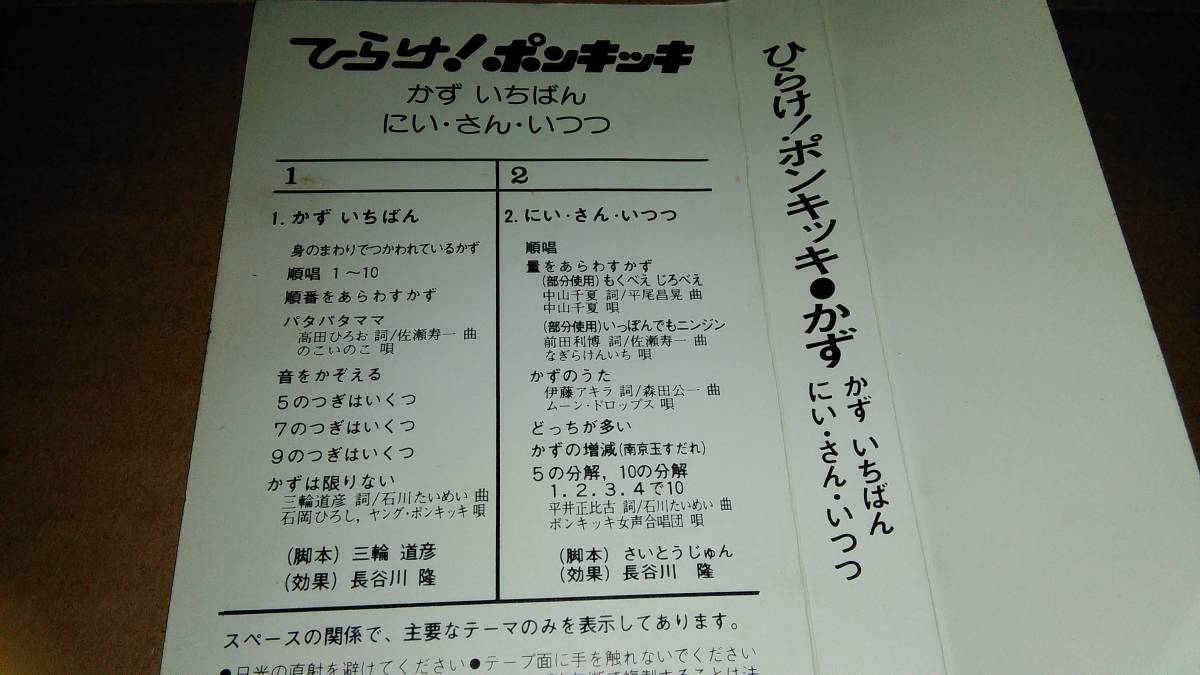 ひらけ!ポンキッキ
かず いちばん
にい・さん・いつつ
1
1. かず いちばん
身のまわりでつかわれているかず
順唱 1〜10
順番をあらわすかず
パタパタママ
高田ひろお 詞/佐瀬寿一 曲
のこいのこ 唄
音をかぞえる
5のつぎはいくつ
7のつぎはいくつ
9のつぎはいくつ
かずは限りない
三輪道彦 詞/石川たいめい 曲
石岡ひろし, ヤング・ポンキッキ 唄
(脚本) 三輪 道彦
(効果) 長谷川 隆
2
2. にい・さん・いつつ
順唱
量をあらわすかず
(部分使用)もくべえ じろべえ
中山千夏 詞/平尾昌晃 曲
中山千夏 唄
(部分使用)いっぽんでもニンジン
前田利博 詞/佐瀬寿一 曲
なぎらけんいち 唄
かずのうた
伊藤アキラ 詞/森田公一 曲
ムーン・ドロップス 唄
どっちが多い
かずの増減(南京玉すだれ)
5の分解, 10の分解
1.2.3.4で10
平井正比古 詞/石川たいめい 曲
ポンキッキ女声合唱団 唄
(脚本) さいとうじゅん
(効果) 長谷川 隆
スペースの関係で、主要なテーマのみを表示してあります。
●日光の直射を避けてください●テープ面に手を触れないでください
ひらけ!ポンキッキ●かず
かず いちばん
にい・さん・いつつ